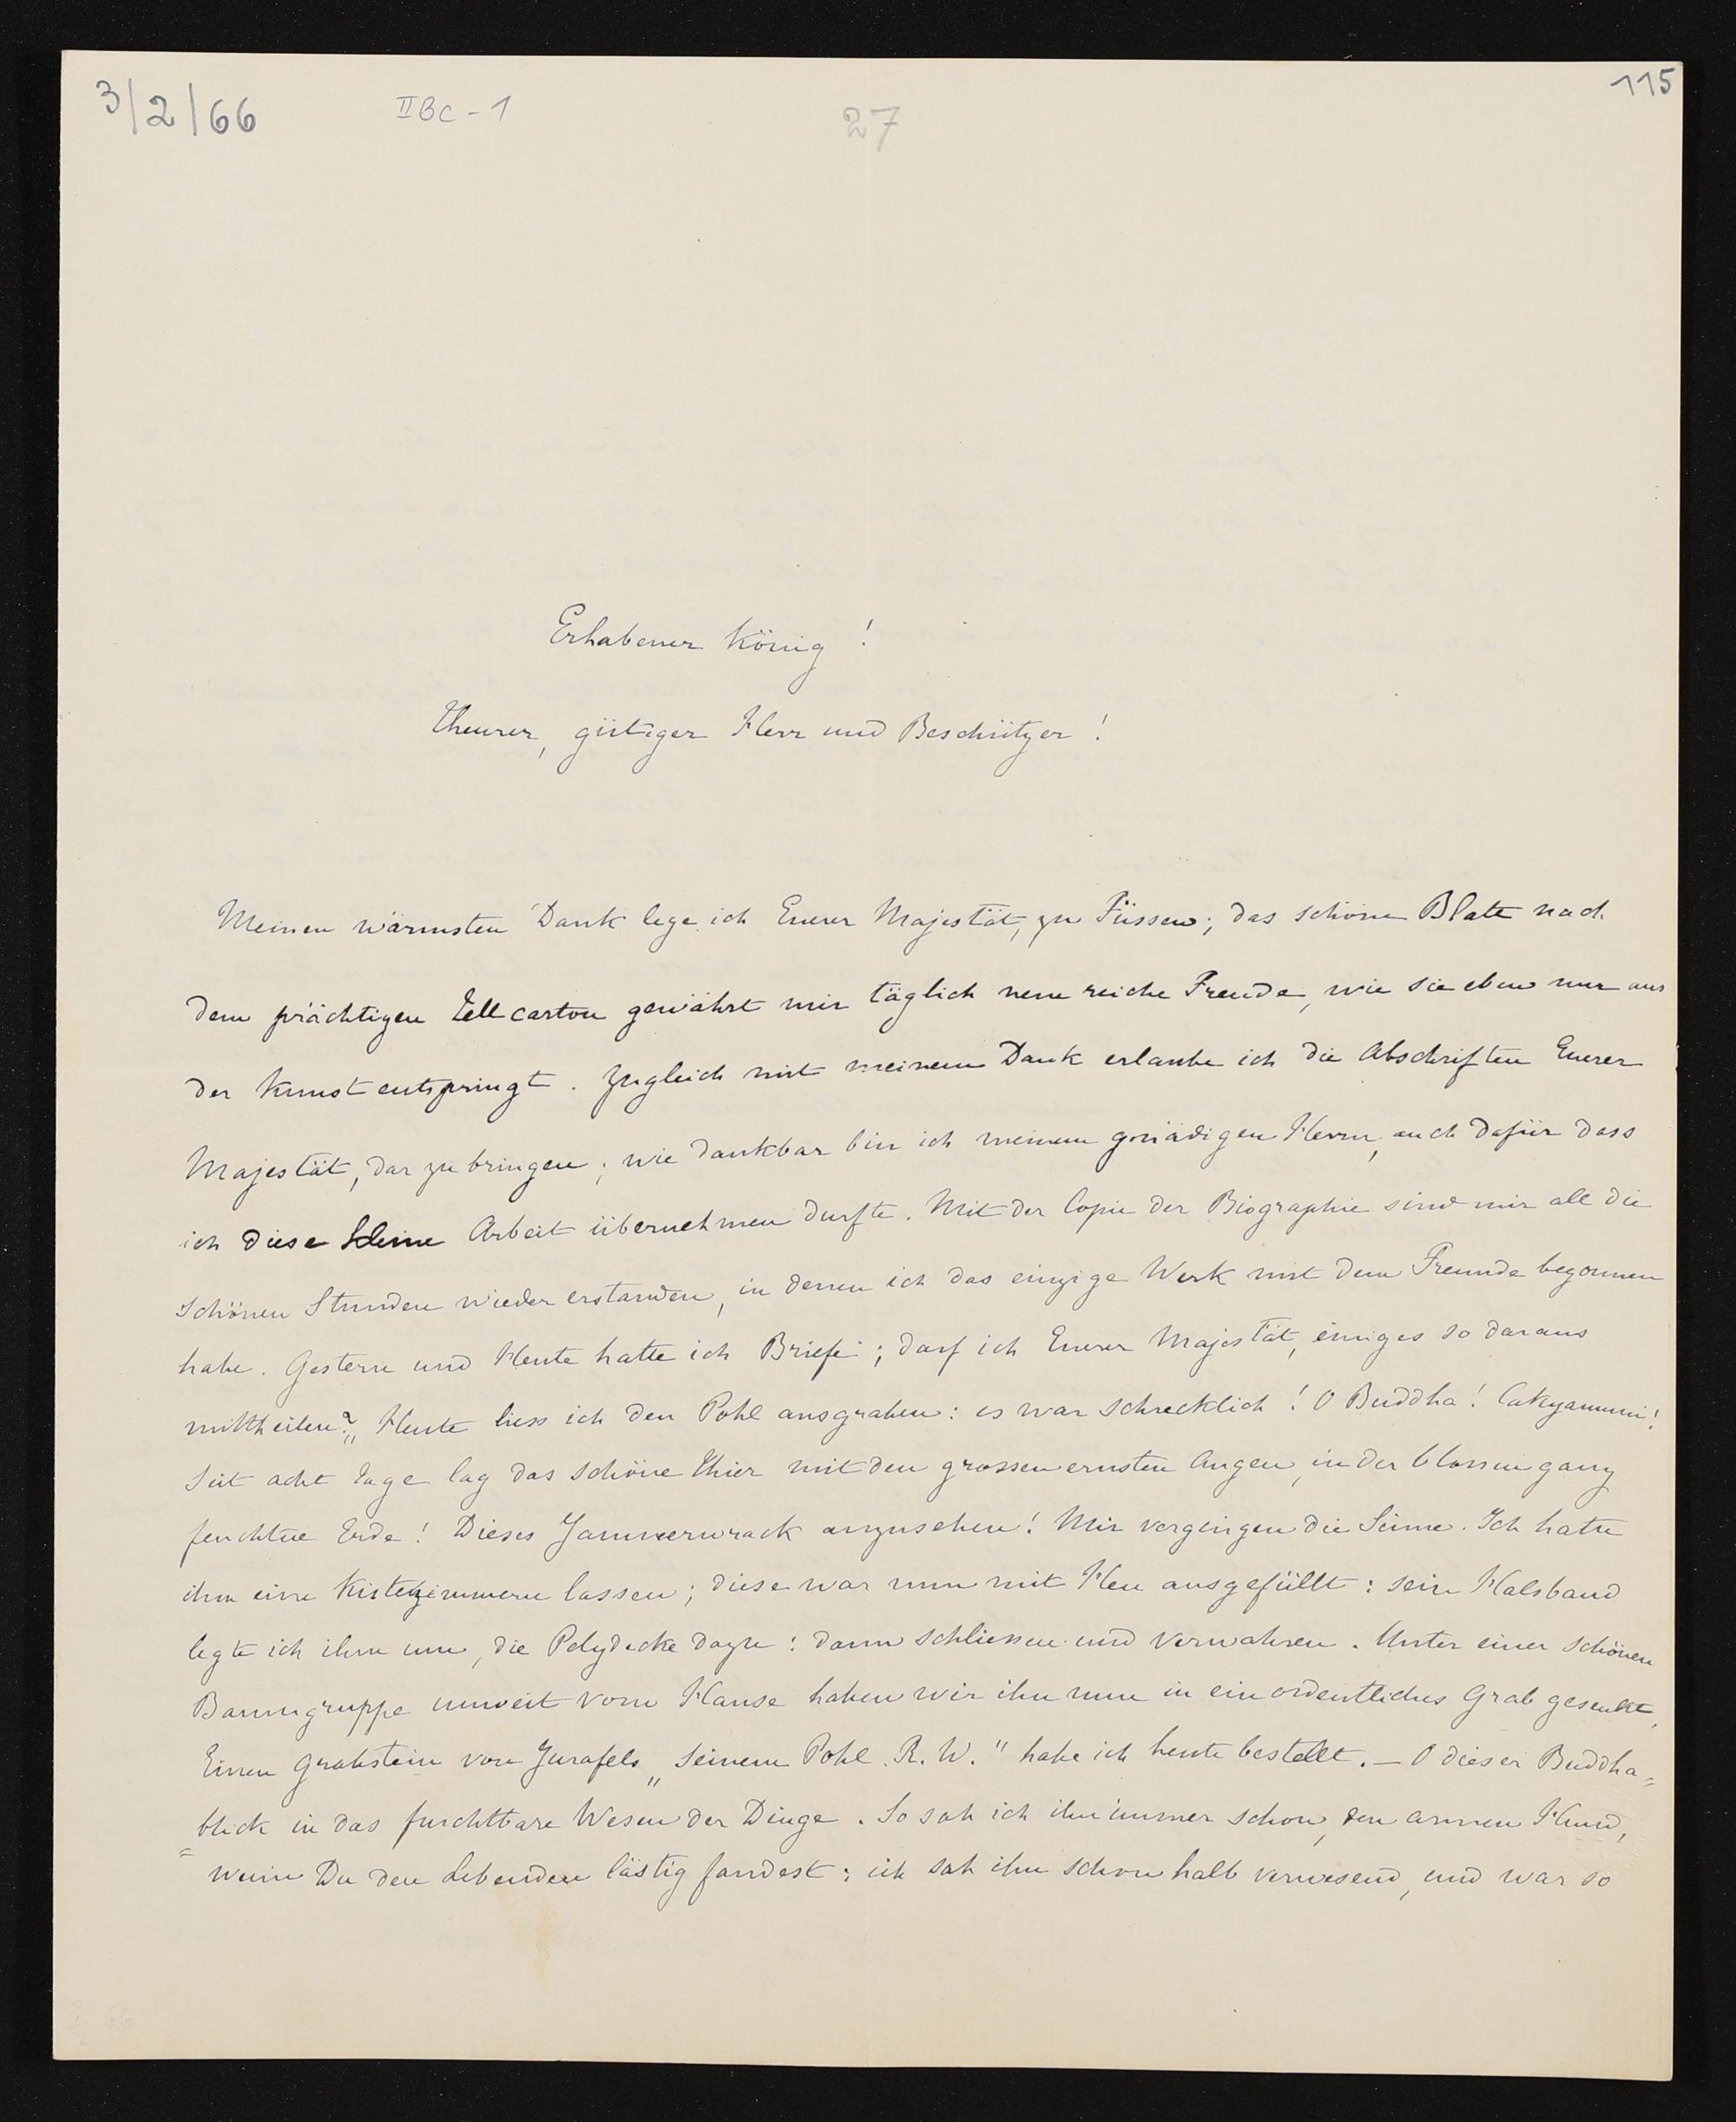 3/2/66
IIBc-1
27
115
Erhabener König!
Theurer, gütiger Herr und Beschützer!
Meinen wärmsten Dank lege ich Euerer Majestät, zu Füssen; das schöne Blatt nach
dem prächtigen Tellcarton gewährt mir täglich neue reiche Freude, wie sie eben nur aus
der Kunst entspringt. Zugleich mit meinem Dank erlaube ich die Abschriften Euerer
Majestät, dar zu bringen; wie dankbar bin ich meinem gnädigen Herrn, auch dafür dass
ich diese kleine Arbeit übernehmen durfte. Mit der Copie der Biographie sind mir all die
schönen Stunden wieder erstanden, in denen ich das einzige Werk mit dem Freunde begonnen
habe. Gestern und Heute hatte ich Briefe; darf ich Euerer Majestät, einiges so daraus
mittheilen? „Heute liess ich den Pohl ausgraben: es war schrecklich! O Buddha! Cakyamuni!
Seit acht Tage lag das schöne Thier mit den grossen ernsten Augen, in der blossen ganz
feuchten Erde! Dieses Jammerwrack anzusehen! Mir vergingen die Sinne. Ich hatte
ihm eine Kiste zimmern lassen; diese war nun mit Heu ausgefüllt: sein Halsband
legte ich ihm um, die Pelzdecke dazu: dann schliessen und verwahren. Unter einer schönen
Baumgruppe unweit vom Hause haben wir ihn nun in ein ordentliches Grab gesenkt,
Einen Grabstein von Jurafels „Seinem Pohl. R. W." habe ich heute bestellt. — O dieser Buddha=
=blick in das furchtbare Wesen der Dinge. So sah ich ihn immer schon, den armen Hund,
wenn Du den Lebenden lästig fandest: ich sah ihn schon halb verwesend, und war so